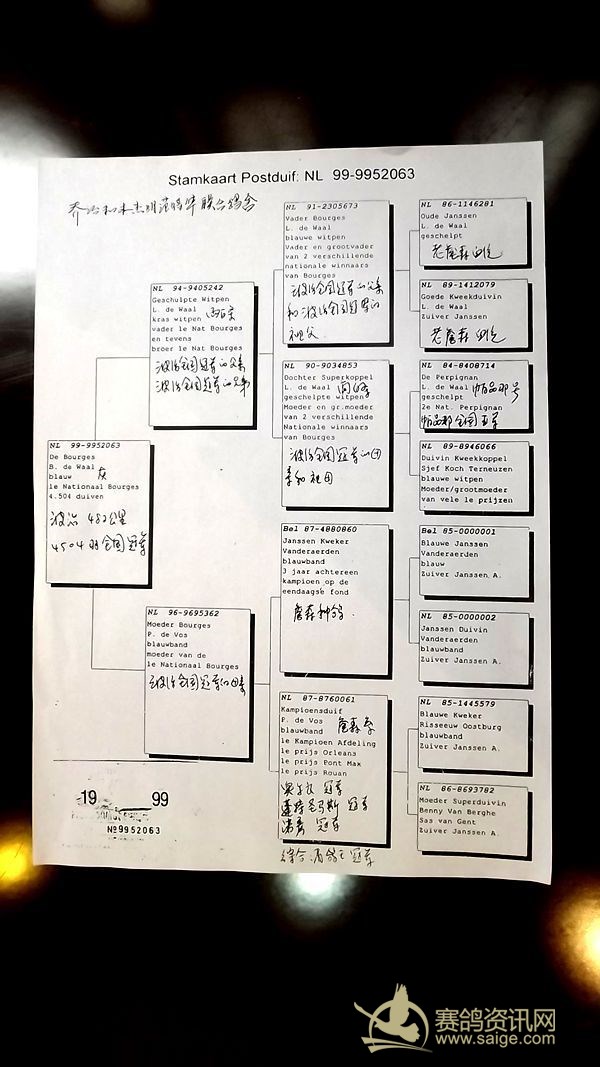 Stamkaart Postduif: NL 99-9952063
NL 99-9952063
De Bourges
B. de Waal
blauw 灰
1e Nationaal Bourges
4.504 duiven
波治 482公里
4504羽全国冠军
NL 94-9405242
Geschulpte Witpen
L. de Waal
kras witpen 雨白条
vader 1e Nat Bourges
en tevens
broer 1e Nat Bourges
波治全国冠军的父亲
波治全国冠军的兄弟
NL 96-9695362
Moeder Bourges
P. de Vos
blauwband
moeder van de
1e Nationaal Bourges
波治全国冠军的母亲
NL 91-2305673
Vader Bourges
L. de Waal
blauwe witpen
Vader en grootvader
van 2 verschillende
nationale winnaars
van Bourges
波治全国冠军的父亲
和波治全国冠军的
祖父
NL 90-9034853
Dochter Superkoppel
L. de Waal
geschelpte witpen
Moeder en gr.moeder
van 2 verschillende
Nationale winnaars
van Bourges
波治全国冠军的母
亲和祖母
Bel 87-4880860
Janssen Kweker
Vanderaerden
blauwband
3 jaar achtereen
kampioen op de
eendaagse fond
詹森种鸽
NL 87-8760061
Kampioensduif
P. de Vos
blauwband 詹森系
1e Kampioen Afdeling
1e prijs Orleans
1e prijs Pont Max
1e prijs Rouan
奥尔良 冠军
蓬特马斯 冠军
冠军
综合 冠军
NL 86-1146281
Oude Janssen
L. de Waal
geschelpt
老詹森血统
NL 89-1412079
Goede Kweekduivin
L. de Waal
Zuiver Janssen
老詹森血统
NL 84-8408714
De Perpignan
L. de Waal 帕品那号
geschulpt
2e Nat. Perpignan
帕品那全国亚军
NL 89-8946066
Duivin Kweekkoppel
Sjef Koch Terneuzen
blauwe witpen
Moeder/grootmoeder
van vele 1e prijzen
Bel 85-0000001
Blauwe Janssen
Vanderaerden
blauw
Zuiver Janssen A.
NL 85-0000002
Janssen Duivin
Vanderaerden
blauwband
Zuiver Janssen A.
NL 85-1445579
Blauwe Kweker
Risseeuw Oostburg
blauwband
Zuiver Janssen A.
NL 86-8693782
Moeder Superduivin
Benny Van Berghe
Sas van Gent
Zuiver Janssen A.
19 99
Nº9952063
赛鸽资讯网
www.saige.com